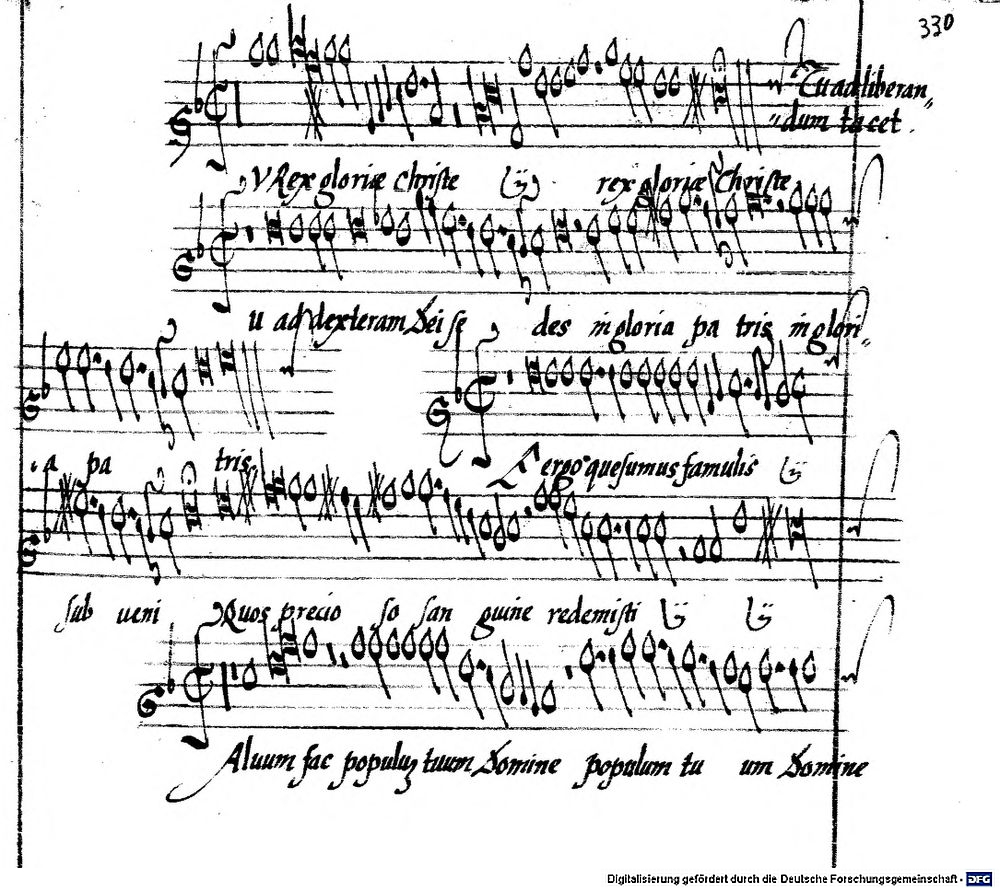 330
Tu ad liberan„
„dum tacet.
V Rex gloriæ Christe ij rex gloriæ Christe
u ad dexteram Dei se des in gloria pa tris in glori„
.a pa tris. T ergo quesumus famulis ij
sub ueni Quos precio so san guine redemisti ij ij
Aluum fac populuȝ tuum Domine populum tu um Domine
Digitalisierung gefördert durch die Deutsche Forschungsgemeinschaft - DFG